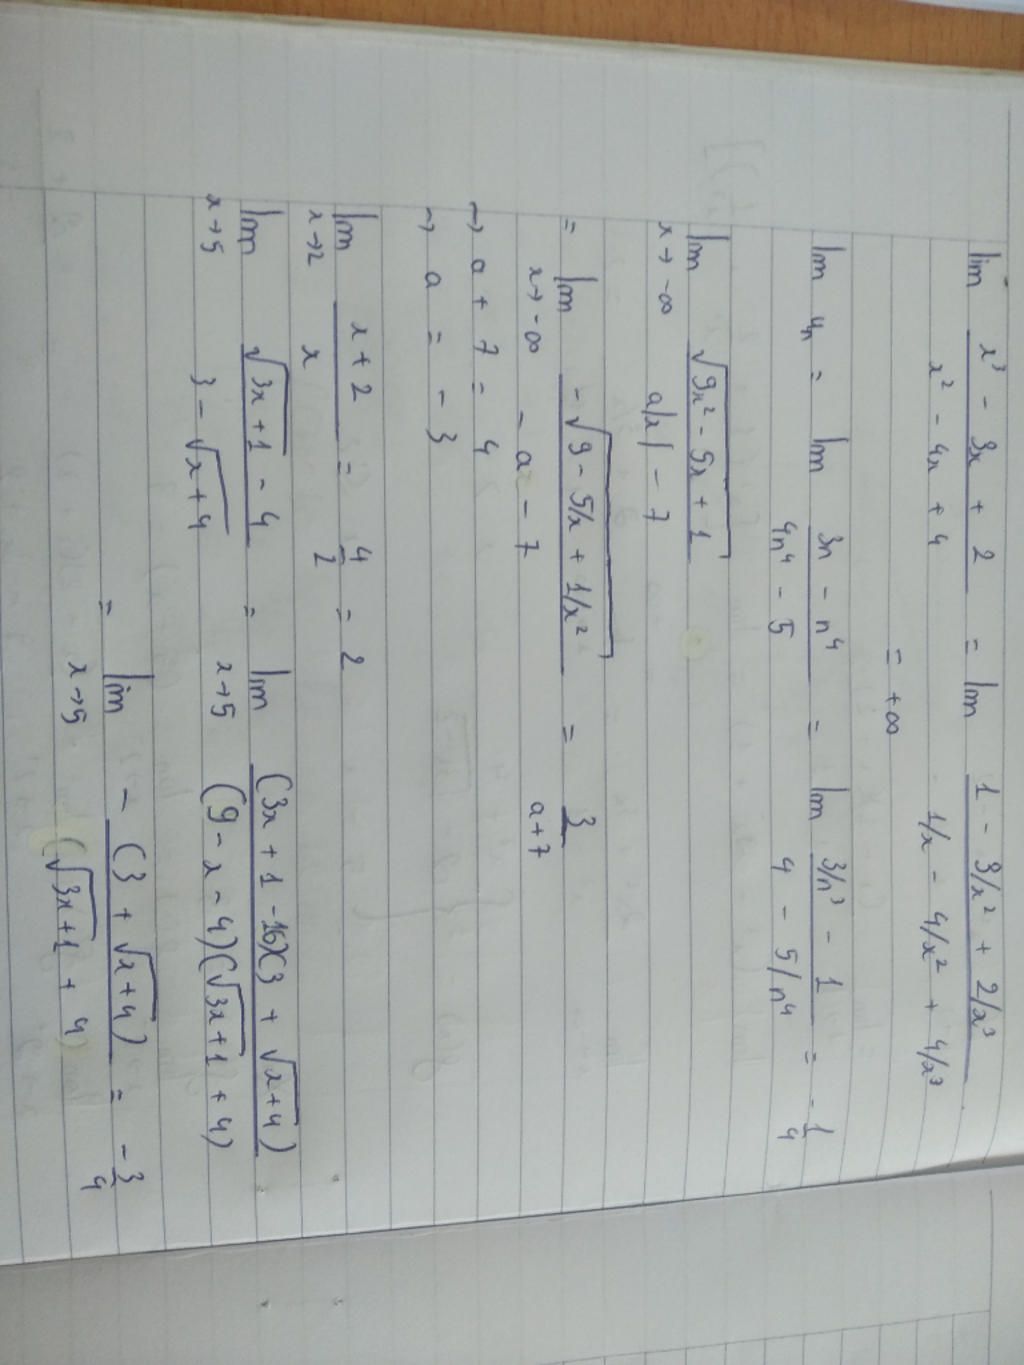 lim x³ - 3x + 2 / x² - 4x + 4 = lim 1 - 3/x² + 2/x³ / 1/x - 4/x² + 4/x³
= +∞
lim uₙ = lim 3n - n⁴ / 4n⁴ - 5 = lim 3/n³ - 1 / 4 - 5/n⁴ = -1/4
lim x→-∞ √(9x² - 5x + 1) / a|x| - 7
= lim x→-∞ -√(9 - 5/x + 1/x²) / -a - 7 = 3 / a+7
→ a + 7 = 4
→ a = -3
lim x→2 x+2 / x = 4/2 = 2
lim x→5 √(3x+1) - 4 / 3 - √(x+4) = lim x→5 (3x + 1 - 16)(3 + √(x+4)) / (9 - x - 4)(√(3x+1) + 4)
= lim x→5 - (3 + √(x+4)) / (√(3x+1) + 4) = -3/4